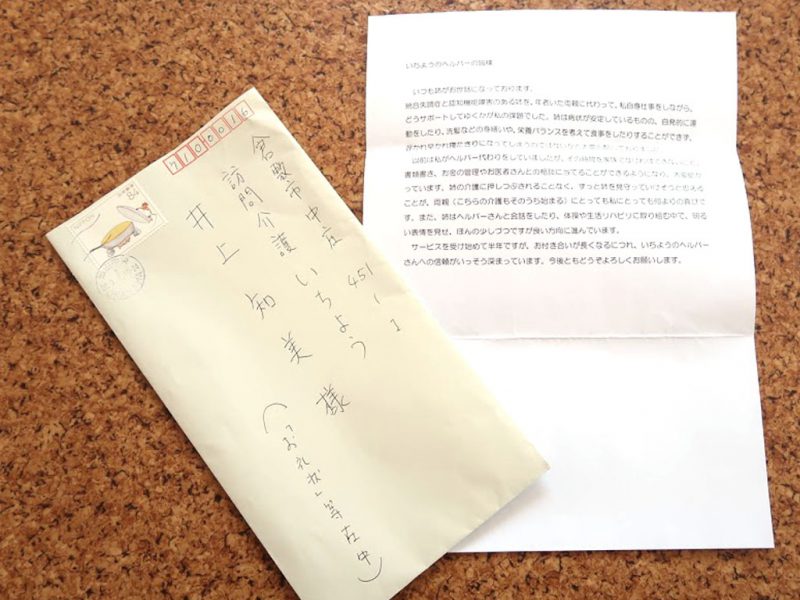 7100016
倉敷市中庄 451
訪問介護 いちよう
井上 知美 様
(「お礼状」等在中)
84
NIPPON
いちようのヘルパーの皆様
いつも姉がお世話になっております。
統合失調症と認知機能障害のある姉を、年老いた両親に代わって、私自身仕事をしながら、
どうサポートしてゆくかが私の課題でした。姉は病状が安定しているものの、自発的に運
動をしたり、洗髪などの身繕いや、栄養バランスを考えて食事をしたりすることができず、
以前は私がヘルパー代わりをしていましたが、その時間を
書類書き、お金の管理やお医者さんとの相談に当てることができるようになり、大変助か
っています。姉の介護に押しつぶされることなく、ずっと姉を見守っていけそうと思える
ことが、両親(こちらの介護もそのうち始まる)にとっても私にとっても何よりの喜びで
す。また、姉はヘルパーさんと会話をしたり、体操や生活リハビリに取り組む中で、明る
い表情を見せ、ほんの少しづつですが良い方向に進んでいます。
サービスを受け始めて半年ですが、お付き合いが長くなるにつれ、いちようのヘルパー
さんへの信頼がいっそう深まっています。今後ともどうぞよろしくお願いします。